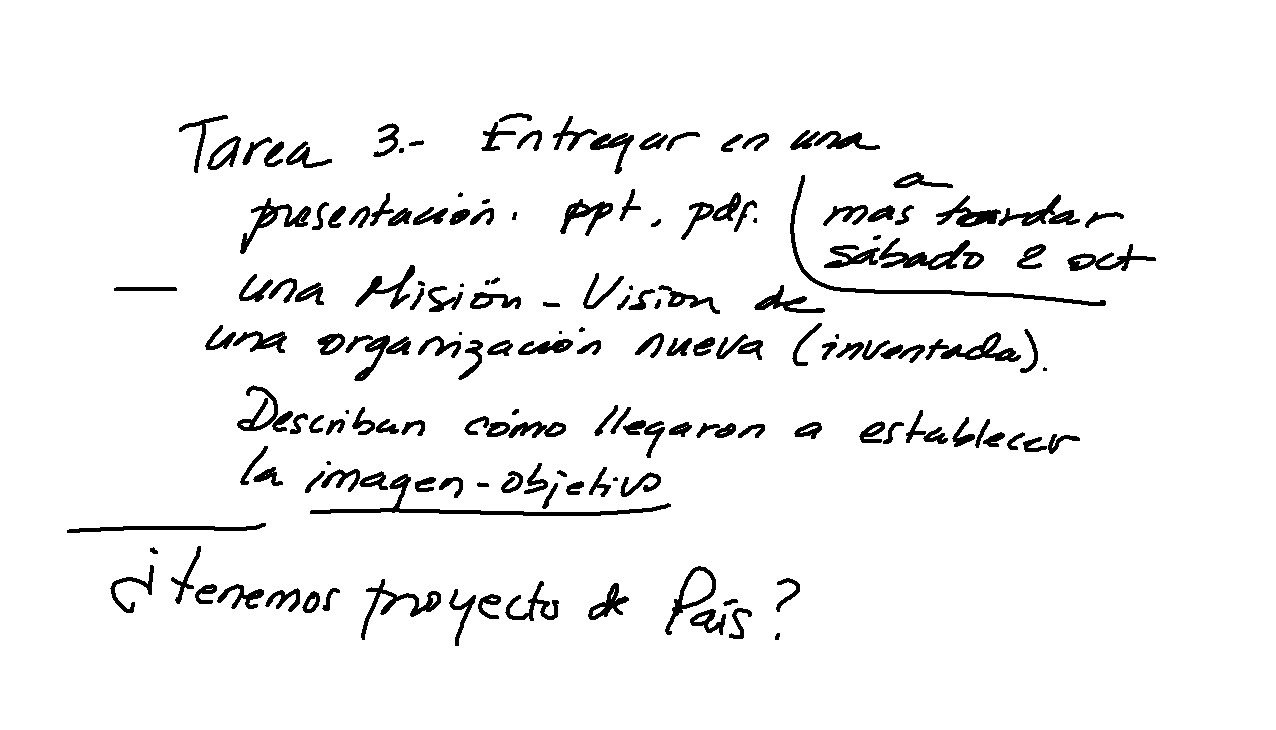 Tarea 3.- Entregar en una
presentación. ppt, pdf.
a
mas tardar
sábado 2 oct
— una Misión - Vision de
una organización nueva (inventada).
Describan cómo llegaron a establecer
la imagen-objetivo
¿tenemos proyecto de País?